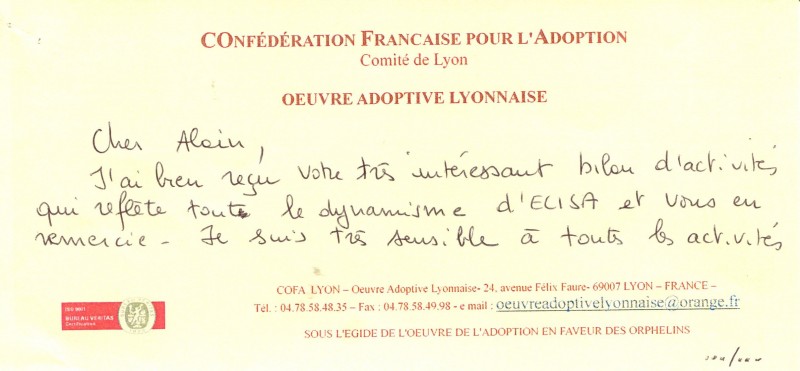 COnfédération Francaise pour l'Adoption
Comité de Lyon
OEUVRE ADOPTIVE LYONNAISE
Cher Alain,
J'ai bien reçu votre très intéressant bilan d'activités
qui reflète toute le dynamisme d'ELISA et vous en
remercie - Je suis très sensible à toutes les activités
COFA LYON – Oeuvre Adoptive Lyonnaise- 24, avenue Félix Faure- 69007 LYON – FRANCE –
Tél. : 04.78.58.48.35 – Fax : 04.78.58.49.98 - e mail : oeuvreadoptivelyonnaise@orange.fr
ISO 9001
BUREAU VERITAS
Certification
SOUS L'EGIDE DE L'OEUVRE DE L'ADOPTION EN FAVEUR DES ORPHELINS